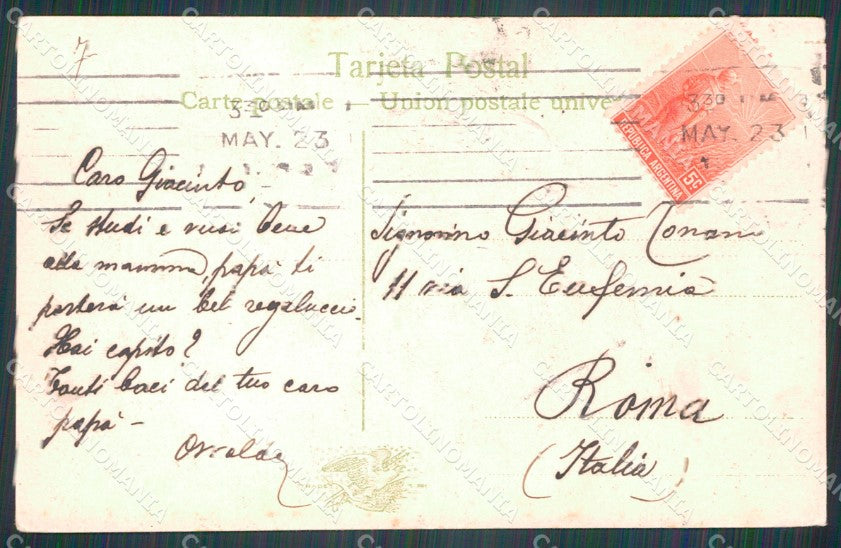 7
Tarjeta Postal
Carte postale — Union postale unive
330
MAY. 23
330
MAY. 23
REPUBLICA ARGENTINA
5c
Caro Giacinto,
Se studi e vuoi bene
alla mamma, papà ti
porterà un bel regaluccio.
Hai capito?
Tanti baci del tuo caro
papà –
Osvaldo
Signorino Giacinto
11 via S. Eufemia
Roma
(Italia)
CARTOLINOMANIA